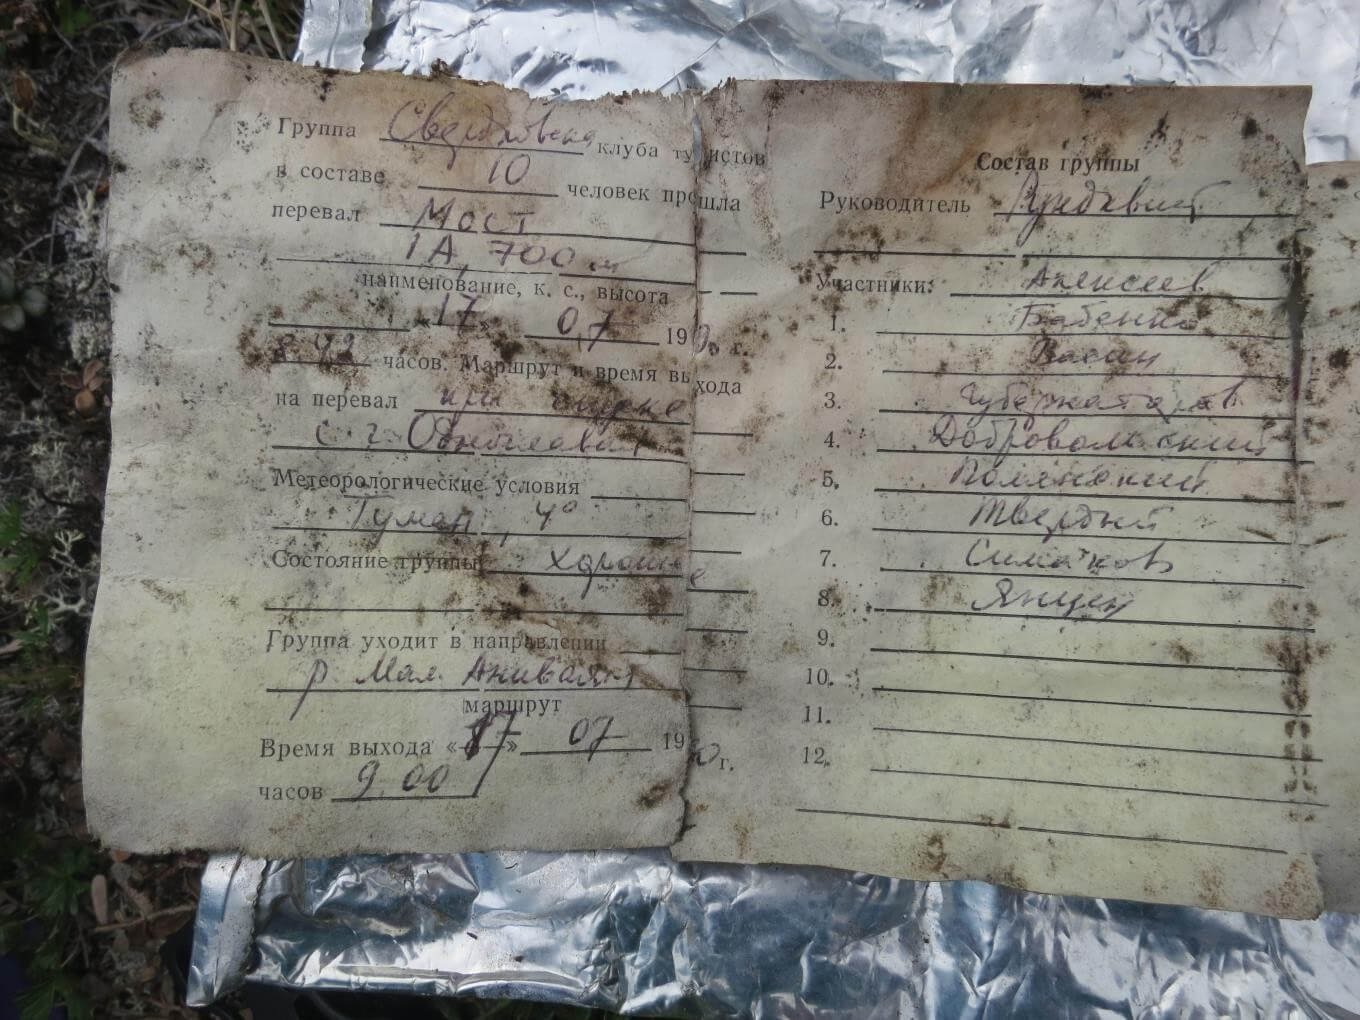 Группа Свердловск клуба туристов
в составе 10 человек прошла
перевал Мост
1А, 700 м
наименование, к. с., высота
«17» 07 19 0 г.
8 42 часов. Маршрут и время выхода
на перевал при
с г.
Метеорологические условия
Туман, 4°
Состояние группы хорошее
Группа уходит в направлении
р. Мал.
маршрут
Время выхода «17» 07 19 0 г.
часов 9.00
Состав группы
Руководитель
Участники: Алексеев
1. Бабенко
2. Васин
3. Губернаторов
4. Добровольский
5. Полянский
6. Твердый
7. Симаков
8. Янцен
9.
10.
11.
12.